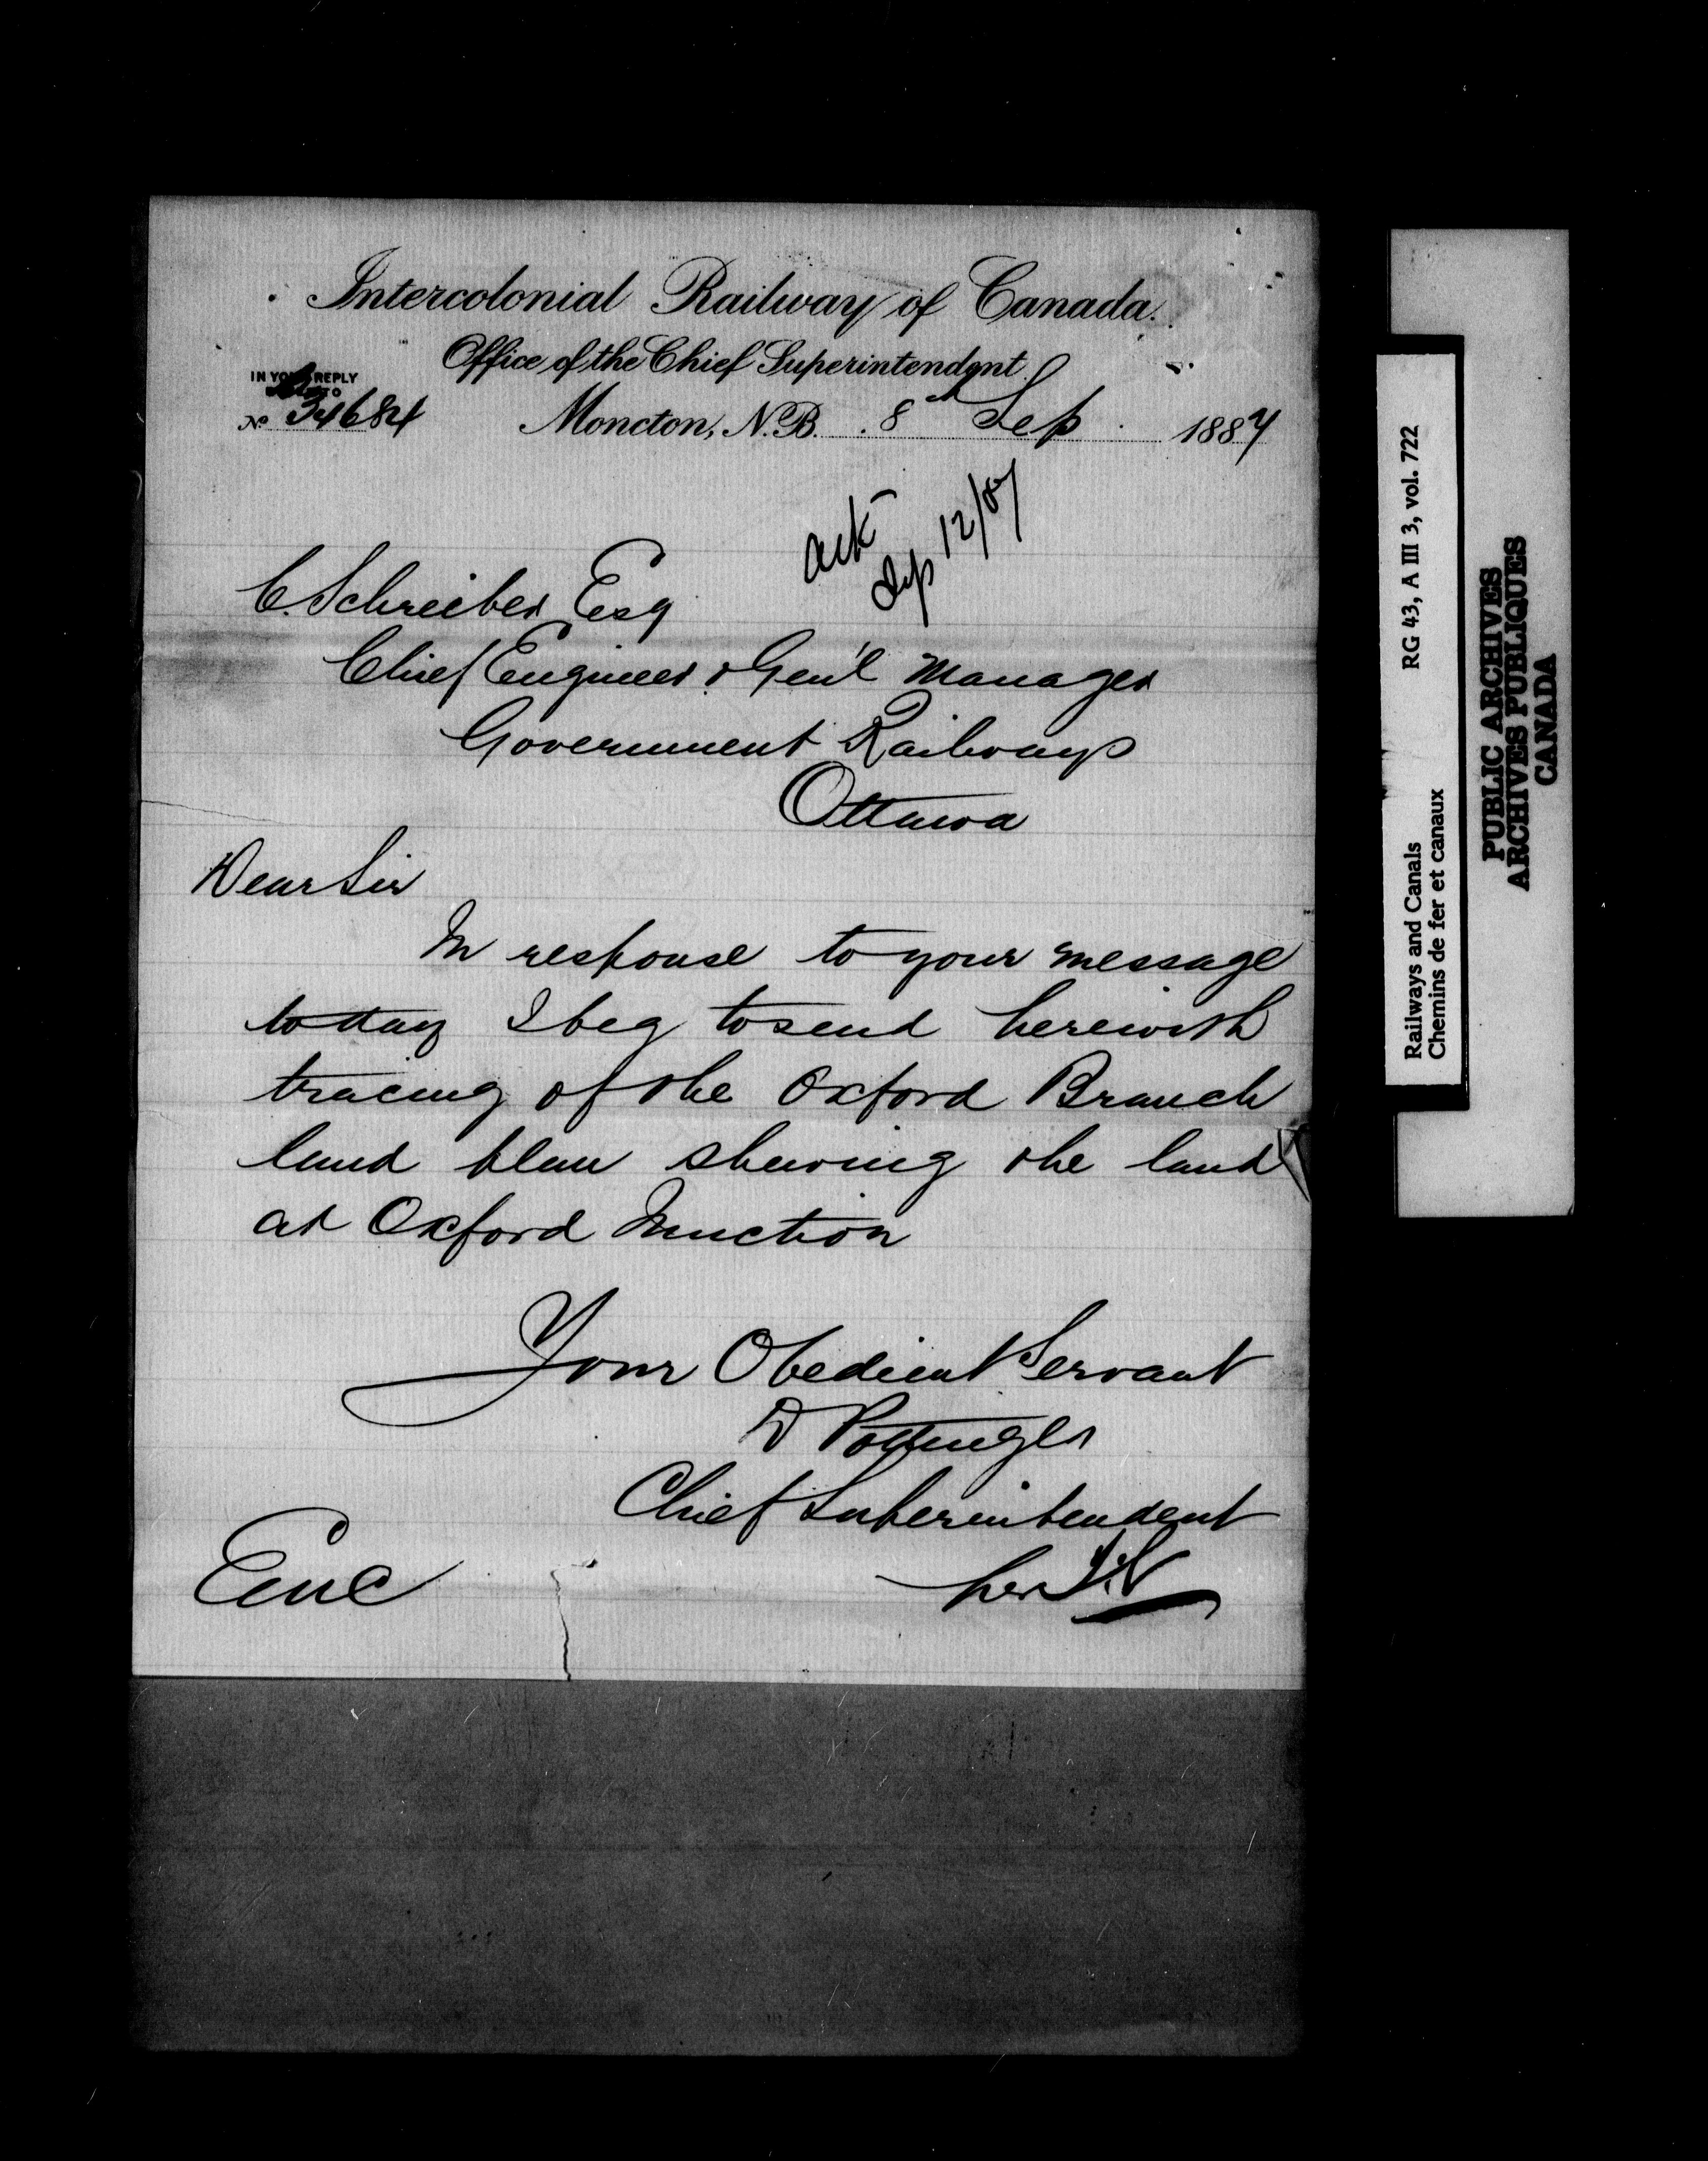 Intercolonial Railway of Canada.
Office of the Chief Superintendent.
IN YOUR REPLY
TO
No. 34684
Moncton, N.B. 8th Sep 1887
Ack
Sep 12/87
C. Schreiber Esq
Chief Engineer & Gen'l Manager
Government Railways
Ottawa
Dear Sir
In response to your message
today I beg to send herewith
tracing of the Oxford Branch
land plan shewing the land
at Oxford Junction
Your Obedient Servant
D Pottinger
Chief Superintendent
per
Enc
Railways and Canals RG 43, A III 3, vol. 722
Chemins de fer et canaux
PUBLIC ARCHIVES
ARCHIVES PUBLIQUES
CANADA